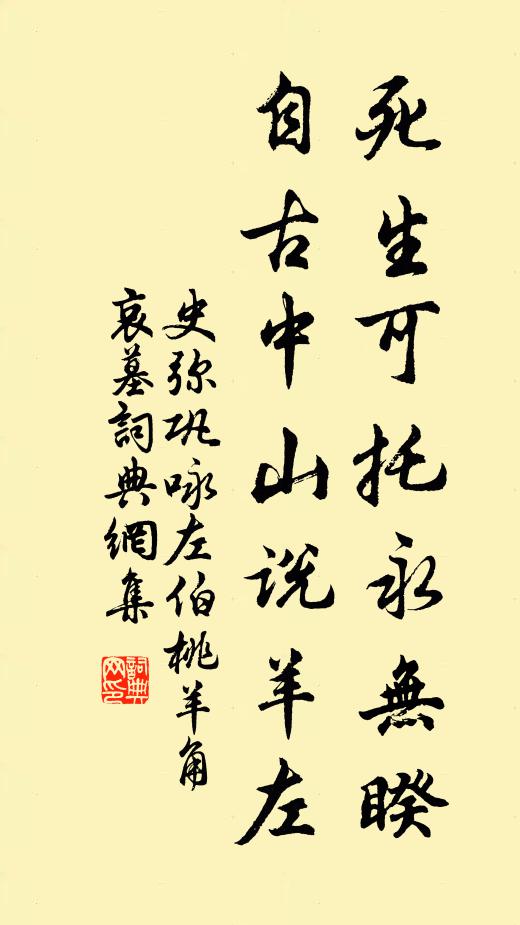 死生可托永無睽
自古中山説羊左
史弥巩咏左伯桃羊角
哀墓詞典網集
詞典网印